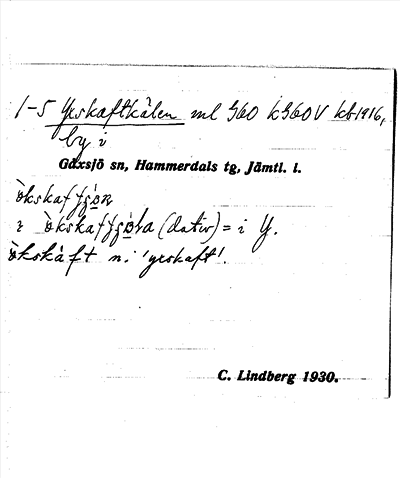 1-5 Yxskaftkälen ml 360 k 360 V kb 1916,
by i
Gåxsjö sn, Hammerdals tg, Jämtl. l.
i (dativ) = i Y.
òkskàft n. 'yxskaft'.
C. Lindberg 1930.